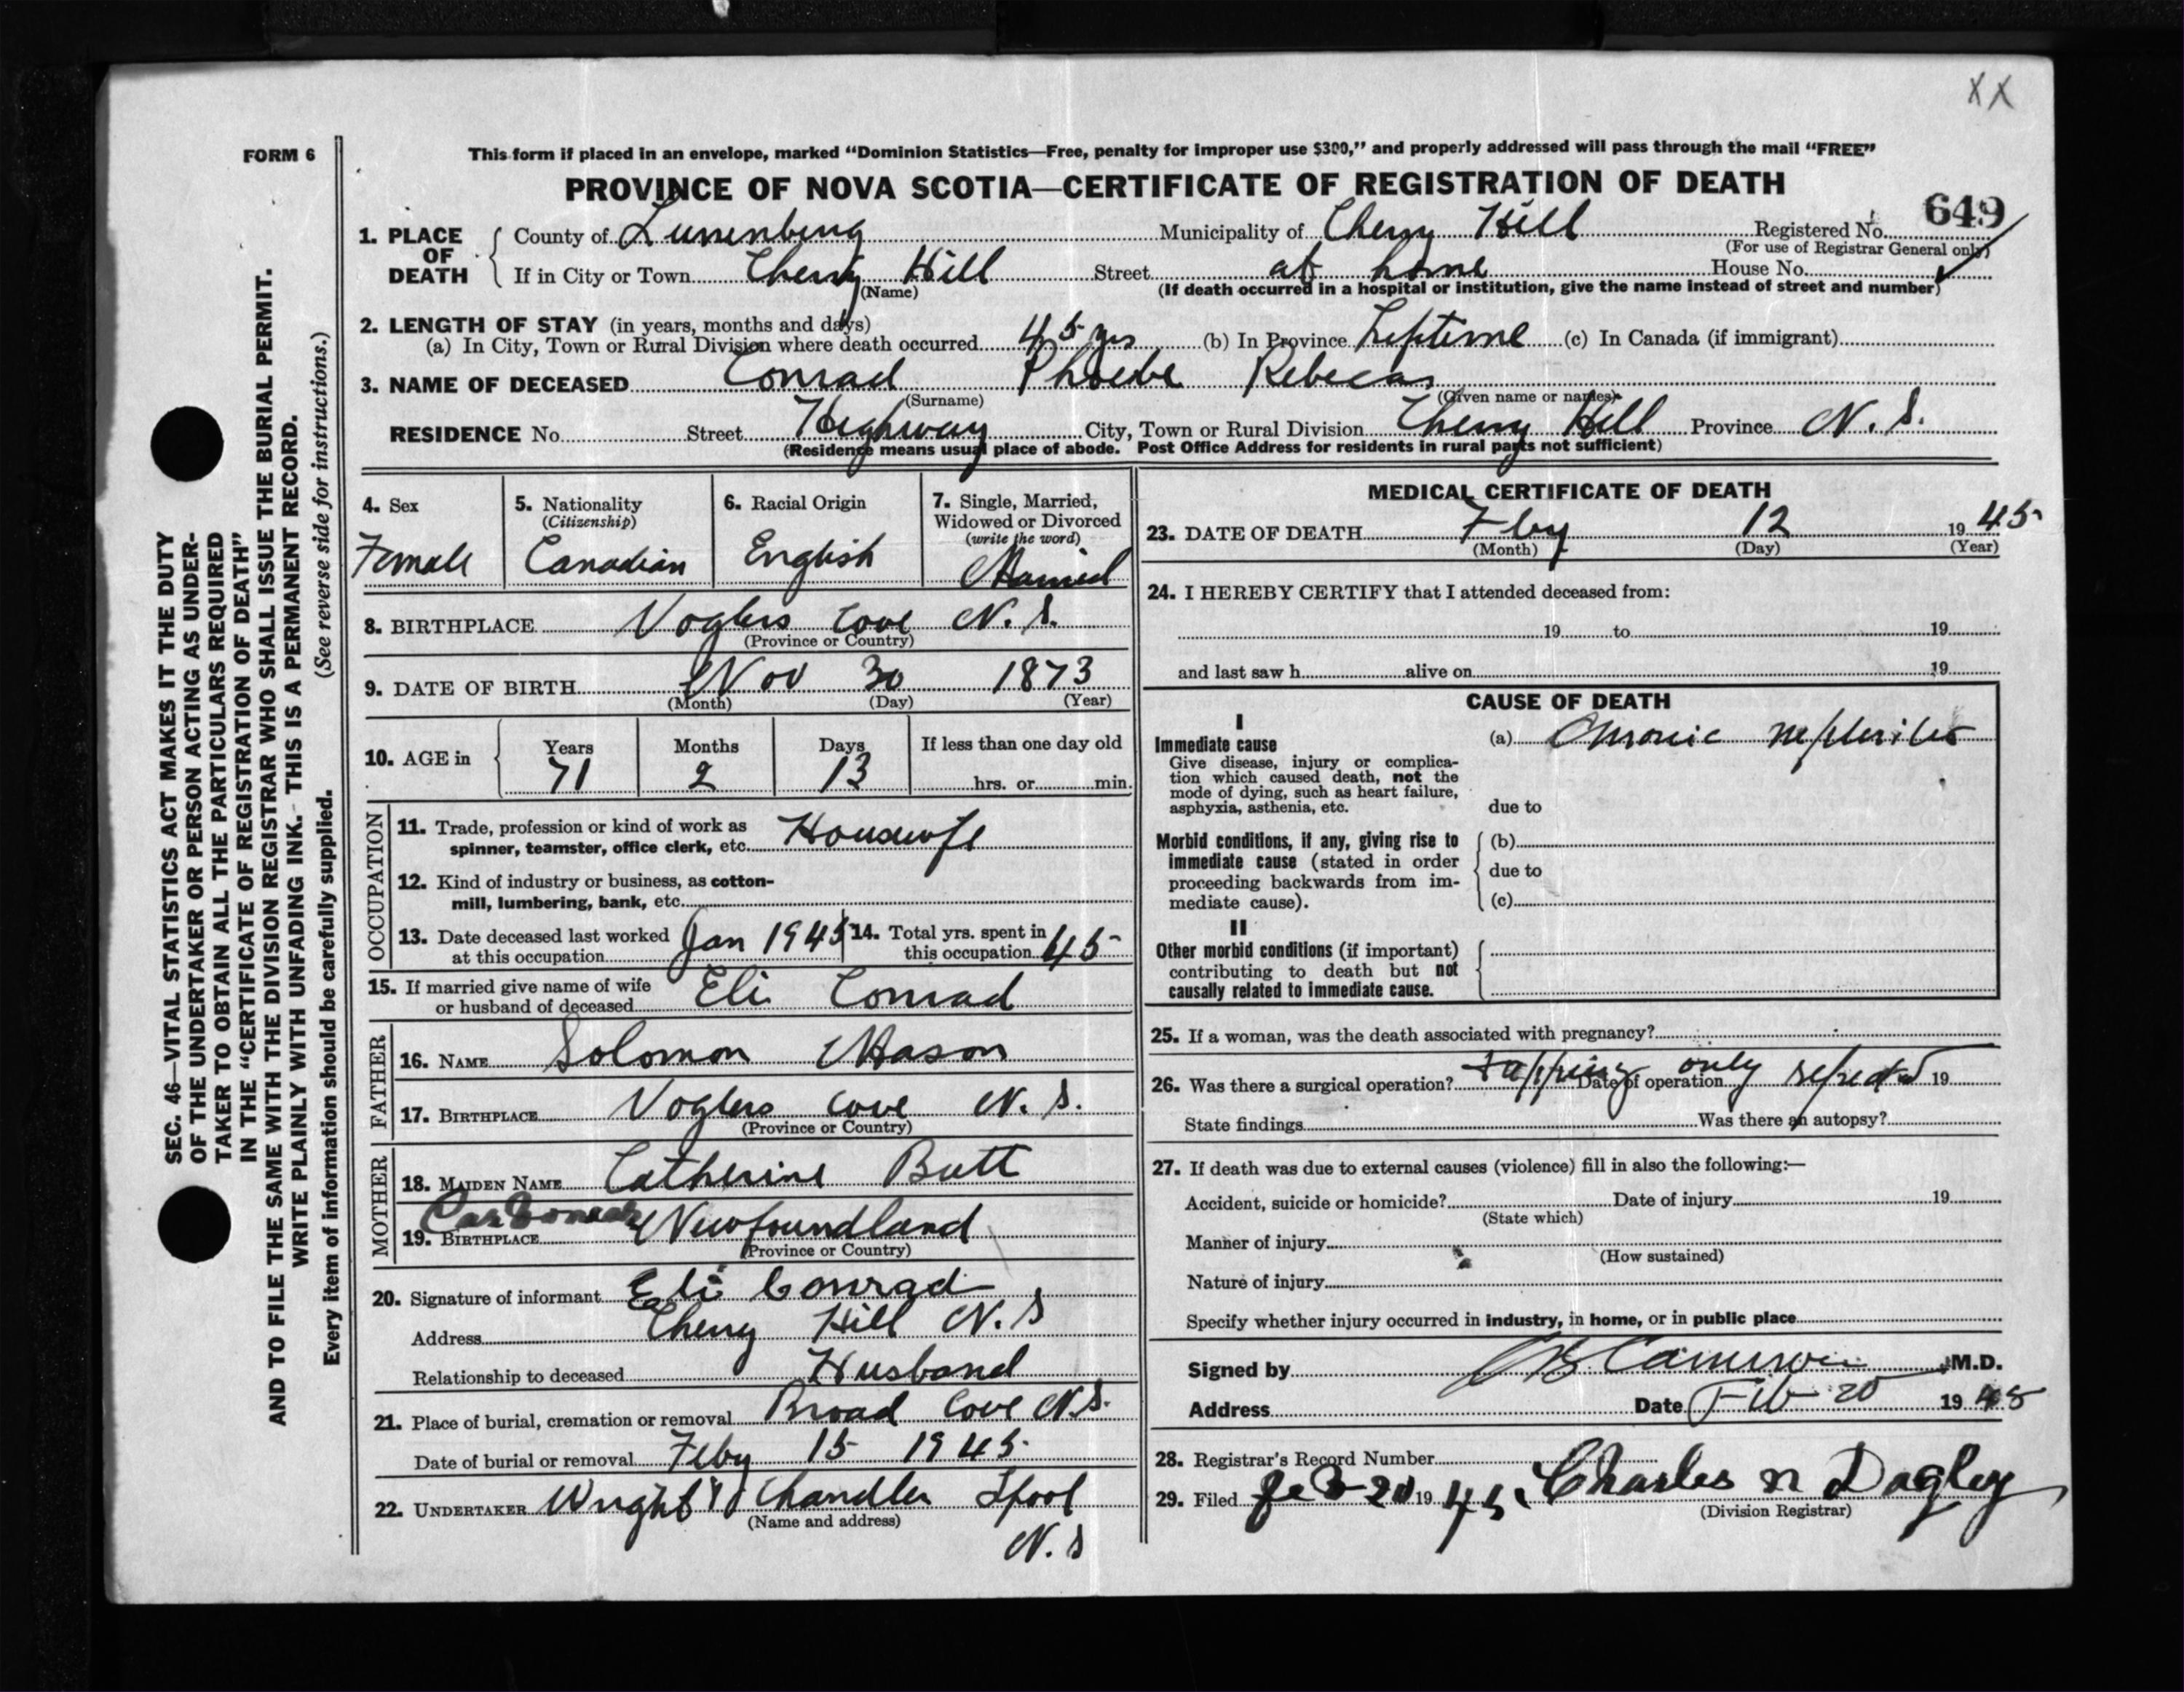 XX
FORM 6
This form if placed in an envelope, marked “Dominion Statistics—Free, penalty for improper use $300,” and properly addressed will pass through the mail “FREE”
PROVINCE OF NOVA SCOTIA—CERTIFICATE OF REGISTRATION OF DEATH
649
1. PLACE OF DEATH County of Lunenburg Municipality of Cherry Hill Registered No.
(For use of Registrar General only)
If in City or Town Cherry Hill Street at home House No.
(Name) (If death occurred in a hospital or institution, give the name instead of street and number)
2. LENGTH OF STAY (in years, months and days)
(a) In City, Town or Rural Division where death occurred 45 yrs (b) In Province Liftime (c) In Canada (if immigrant)
3. NAME OF DECEASED Conrad Phoebe Rebecas
(Surname) (Given name or names)
RESIDENCE No. Street Highway City, Town or Rural Division Cherry Hill Province N. S.
(Residence means usual place of abode. Post Office Address for residents in rural parts not sufficient)
4. Sex
Female
5. Nationality
(Citizenship)
Canadian
6. Racial Origin
English
7. Single, Married,
Widowed or Divorced
(write the word)
Married
8. BIRTHPLACE Voglers Cove N. S.
(Province or Country)
9. DATE OF BIRTH Nov 30 1873
(Month) (Day) (Year)
10. AGE in Years Months Days If less than one day old
71 2 13 hrs. or min.
OCCUPATION
11. Trade, profession or kind of work as
spinner, teamster, office clerk, etc. Housewife
12. Kind of industry or business, as cotton-
mill, lumbering, bank, etc.
13. Date deceased last worked
at this occupation Jan 1945
14. Total yrs. spent in
this occupation 45
15. If married give name of wife
or husband of deceased Eli Conrad
FATHER
16. NAME Solomon Mason
17. BIRTHPLACE Voglers Cove N. S.
(Province or Country)
MOTHER
18. MAIDEN NAME Catherine Butt
19. BIRTHPLACE Carbonear Newfoundland
(Province or Country)
20. Signature of informant Eli Conrad
Address Cherry Hill N. S
Relationship to deceased Husband
21. Place of burial, cremation or removal Broad Cove N.S.
Date of burial or removal Feby 15 1945
22. UNDERTAKER Wright Chandler Lpool
(Name and address)
N. S
MEDICAL CERTIFICATE OF DEATH
23. DATE OF DEATH Fby 12 1945
(Month) (Day) (Year)
24. I HEREBY CERTIFY that I attended deceased from:
19 to 19
and last saw h alive on 19
CAUSE OF DEATH
I
Immediate cause
Give disease, injury or complica-
tion which caused death, not the
mode of dying, such as heart failure,
asphyxia, asthenia, etc.
(a) Chronic nephritis
due to
Morbid conditions, if any, giving rise to
immediate cause (stated in order
proceeding backwards from im-
mediate cause).
(b)
due to
(c)
II
Other morbid conditions (if important)
contributing to death but not
causally related to immediate cause.
25. If a woman, was the death associated with pregnancy?
26. Was there a surgical operation? tapping only Date of operation 19
State findings Was there an autopsy?
27. If death was due to external causes (violence) fill in also the following:—
Accident, suicide or homicide? Date of injury 19
(State which)
Manner of injury
(How sustained)
Nature of injury
Specify whether injury occurred in industry, in home, or in public place
Signed by Cameron M.D.
Address Date Feb 20 1945
28. Registrar's Record Number
29. Filed Feb 20 1945. Charles N Dagley
(Division Registrar)
SEC. 46—VITAL STATISTICS ACT MAKES IT THE DUTY
OF THE UNDERTAKER OR PERSON ACTING AS UNDER-
TAKER TO OBTAIN ALL THE PARTICULARS REQUIRED
IN THE “CERTIFICATE OF REGISTRATION OF DEATH”
AND TO FILE THE SAME WITH THE DIVISION REGISTRAR WHO SHALL ISSUE THE BURIAL PERMIT.
WRITE PLAINLY WITH UNFADING INK. THIS IS A PERMANENT RECORD.
Every item of information should be carefully supplied. (See reverse side for instructions.)